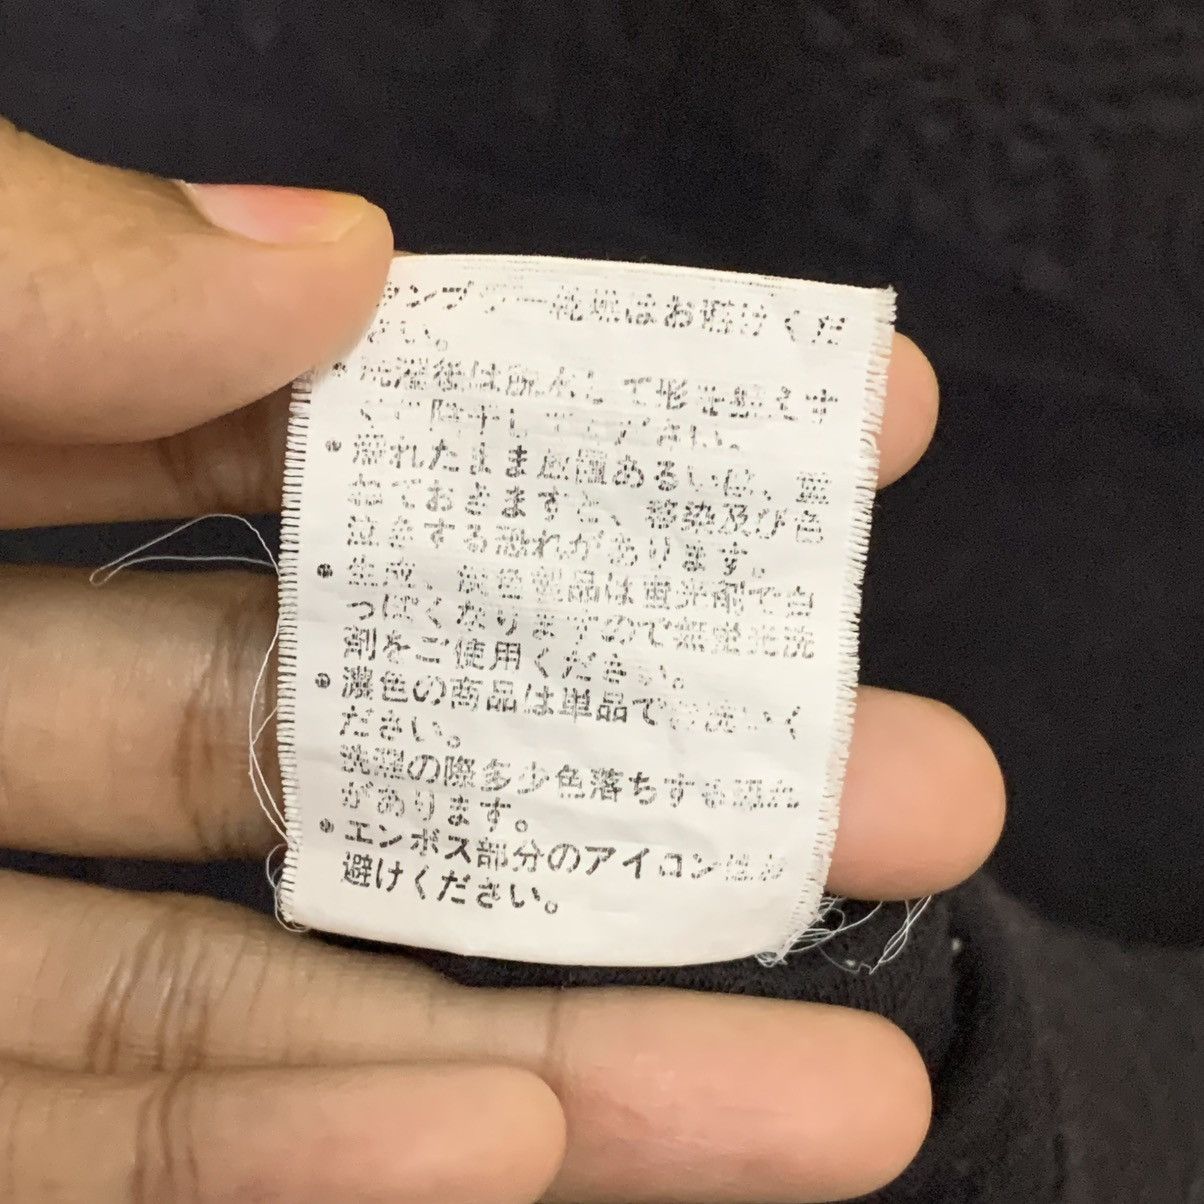 タンブラー乾燥はお避けくだ
さい。
• 洗濯後は脱水して形を整えす
ぐに陰干してください。
• 濡れたまま放置あるいは、重
ねておきますと、移染及び色
泣きする恐れがあります。
• 生成、淡色製品は蛍光剤で白
っぽくなりますので無蛍光洗
剤をご使用ください。
• 濃色の商品は単品でお洗いく
ださい。
洗濯の際多少色落ちする恐れ
があります。
• エンボス部分のアイロンはお
避けください。